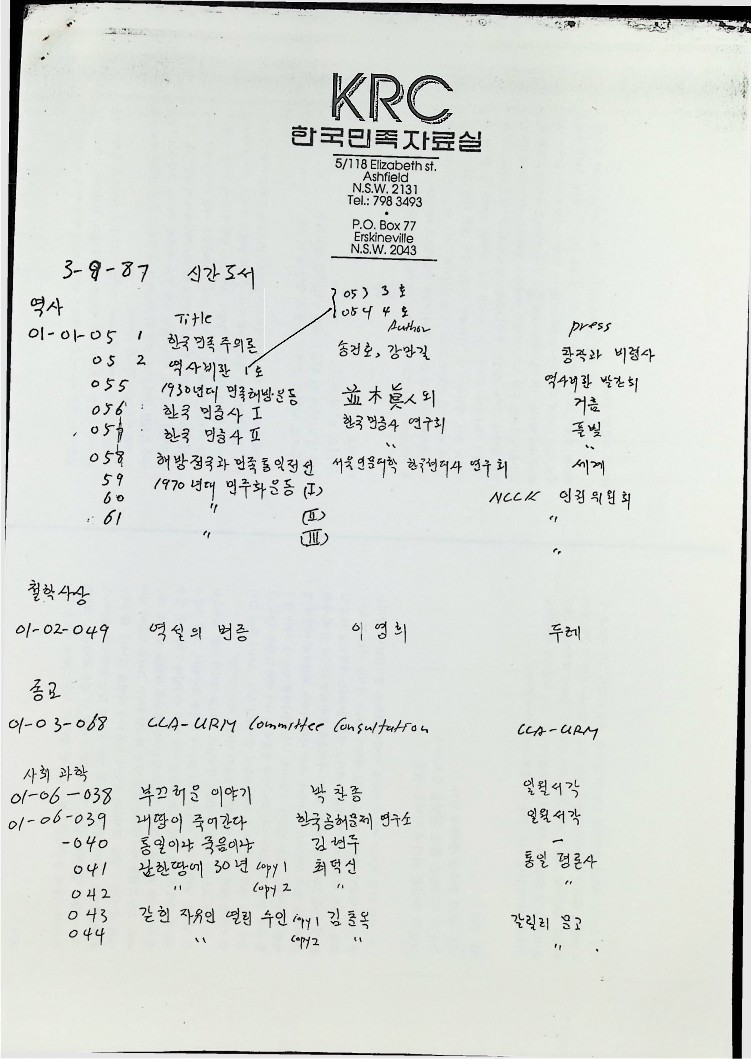 KRC
한국민족자료실
5/118 Elizabeth st.
Ashfield
N.S.W. 2131
Tel.: 798 3493
•
P.O. Box 77
Erskineville
N.S.W. 2043
3-9-87 신간도서
053 3호
054 4호
역사
Title Author press
01-01-05 1 한국민족주의론 송건호, 강만길 창작과 비평사
05 2 역사비판 1호 역사비판 발간회
055 1930년대 민족해방운동 並木眞人외 거름
056 한국 민중사 I 한국민중사 연구회 풀빛
057 한국 민중사 II " "
058 해방정국과 민족통일전선 서울인문대학 한국현대사 연구회 세계
59 1970년대 민주화운동 (I) NCCK 인권위원회
60 " (II) "
61 " (III) "
철학사상
01-02-049 역설의 변증 이영희 두레
종교
01-03-068 CCA-URM Committee Consultation CCA-URM
사회 과학
01-06-038 부끄러운 이야기 박찬종 일월서각
01-06-039 내땅이 죽어간다 한국공해문제 연구소 일월서각
-040 통일이냐 죽음이냐 김 –
041 남한땅에 30년 copy 1 최덕신 통일 평론사
042 " copy 2 " "
043 갇힌 자유인 열린 수인 copy 1 김 갈릴리 문고
044 " copy 2 " "